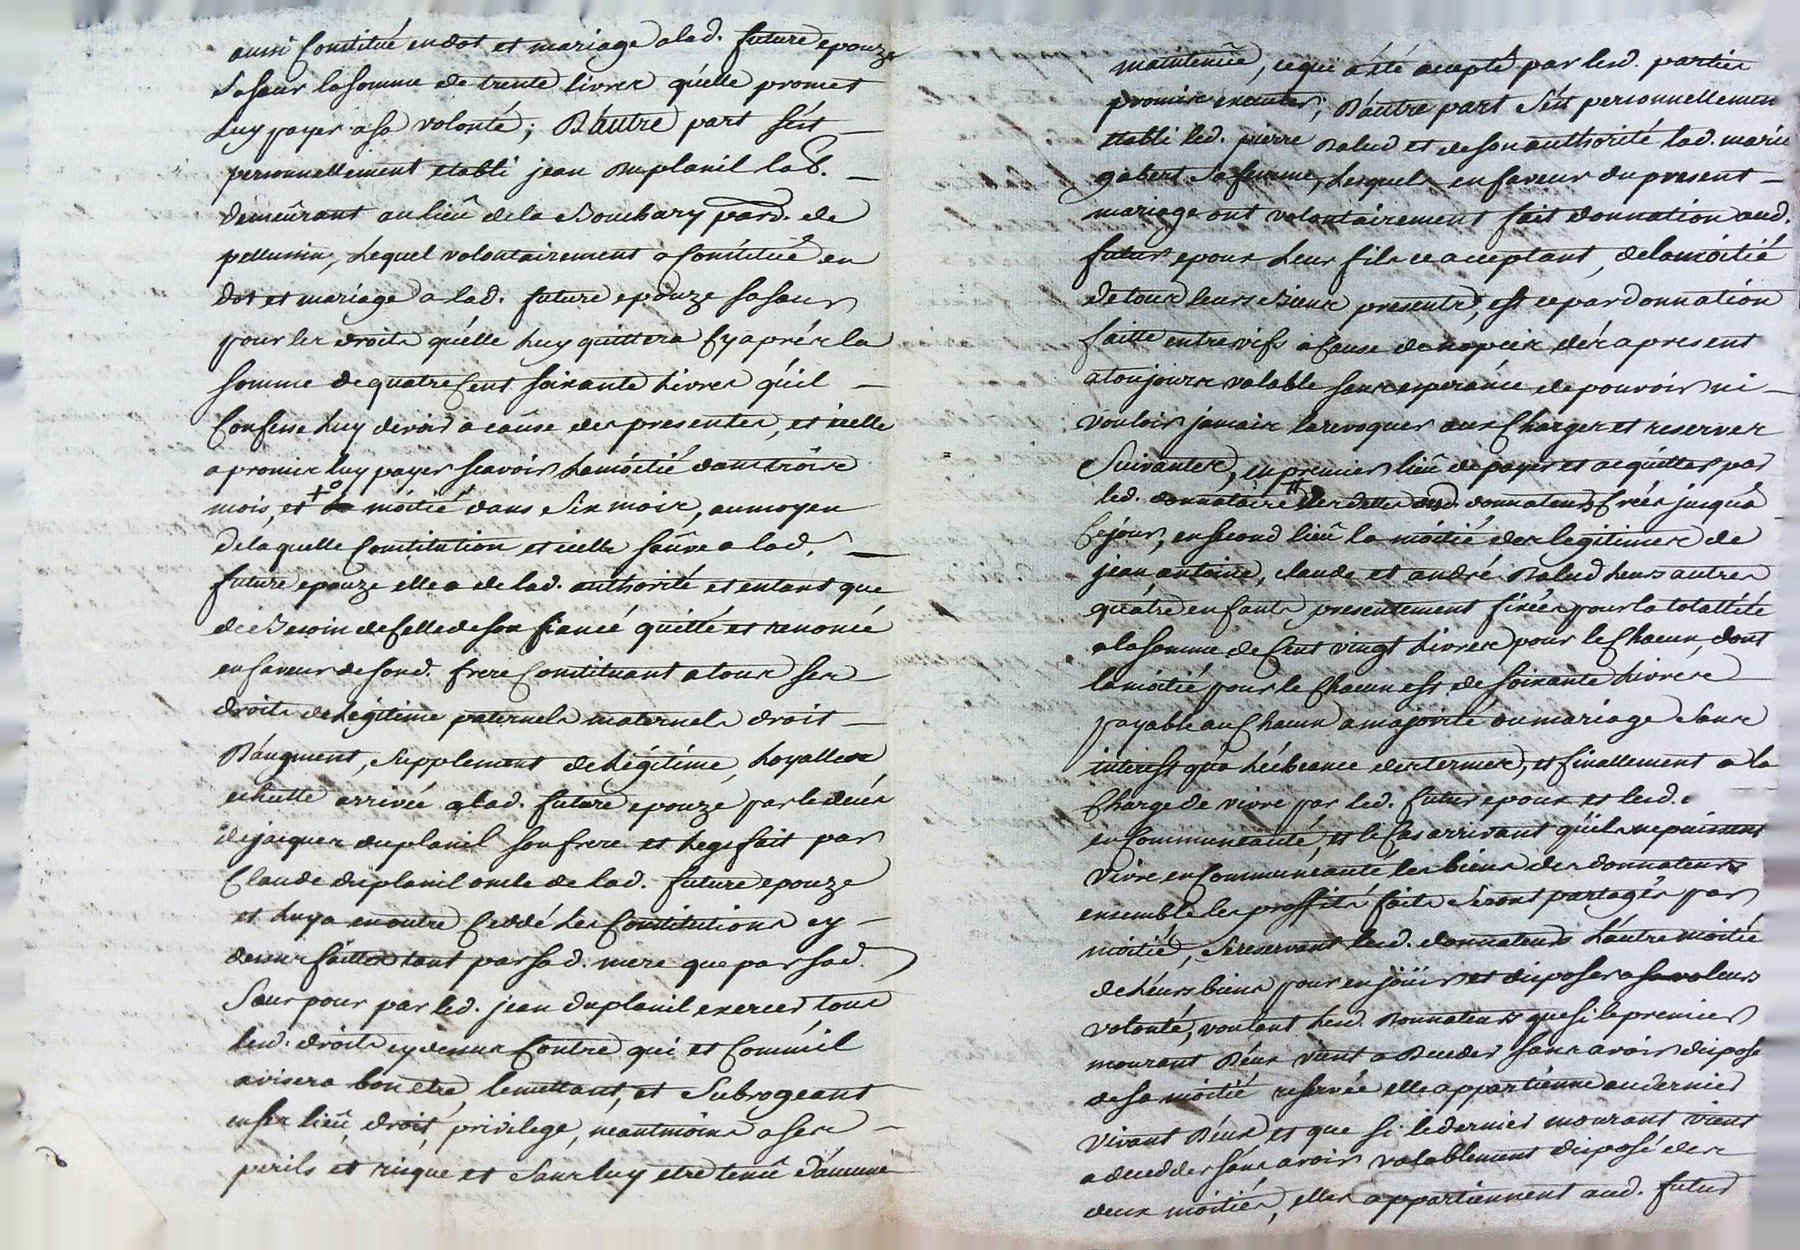 aussi Constitué en dot et mariage a lad. future epouze
sa sœur la somme de trente livres qu'elle promet
luy payer a sa volonté; D'autre part s'est
personnellement etabli jean duplanil lab.
demeurant au lieu de la Bombary par.d de
pelussin, lequel volontairement a Constitué en
dot et mariage a lad. future epouze sa sœur
pour les droits qu'elle luy quittera Cy aprés la
somme de quatre Cent soixante Livres qu'il
Confesse luy devoir a cause des presentes, et icelle
a promis luy payer scavoir la moitié dans trois
mois, et la moitié dans six mois, aumoyen
de laquelle Constitution et icelle sauve a lad.
future epouze elle a de lad. authorité et entant que
de Besoin de Celle de son fiancé quitté et renoncé
en faveur de sond. frere Constituant a tous ses
droits de légitime paternels maternels droit
D'augment, supplement de Légitime, hoyalle
echutte arrivée a lad. future epouze par le decés
de jacques duplanil son frere et Legs fait par
Claude duplanil oncle de lad. future epouze
et luy a en outre Ceddé les Constitutions cy
dessus faittes tant par sad. mere que par sad.
Sœur pour par led. jean duplanil exercer tous
lesd. droits cy dessus Contre qui et Comm'il
avisera bon etre le mettant, et Subrogeant
en ses lieu, droit, privilege, neantmoins a ses
perils et risque et sans luy etre tenue d'aucune
maintenüe, ce qui a été accepté par lesd. parties
promis executer; D'autre part s'est personnellemen
etabli led. pierre Balud et de son authorité lad. marie
gabert sa femme, lesquels en faveur du present
mariage ont volontairement fait donnation aud.
futur epoux leur fils ce acceptant, de la moitié
de tous leurs Biens presents, est ce par donnation
faitte entre vifs a Cause de nopces dés a present
a toujours valable sans esperance de pouvoir ni
vouloir jamais la revoquer aux Charges et reserves
Suivantes, en premier lieu de payer et acquitter par
led. donnataire les dettes desd. donnateurs Créés jusqu'a
Ce jour, en second lieu la moitié des legitimes de
jean antoine, claude et andré Balud leurs autres
quatre enfants presentement fixées pour la totalité
a la somme de Cent vingt Livres pour le Chacun, dont
la moitié pour le Chacun est de soixante livres
payable au Chacun a majorité ou mariage sans
interest qu'a l'écheance des termes, et finallement a la
Charge de vivre par led. futur epoux et lesd.
en Communeauté, et le Cas arrivant qu'ils ne puissent
vivre en Communeauté les biens des donnateurs
ensemble les proffits faits seront partagés par
moitié, se reservant lesd. donnateurs l'autre moitié
de leurs biens pour en joüir et disposer a leurs
volonté, voulant lesd. Donnateurs que si le premier
mourant D'eux vient a Decéder sans avoir disposé
de sa moitié reservée elle appartienne au dernier
vivant D'eux et que si le dernier mourant vient
a decedder sans avoir valablement disposé des
deux moitiés, elles appartiennent aud. futur